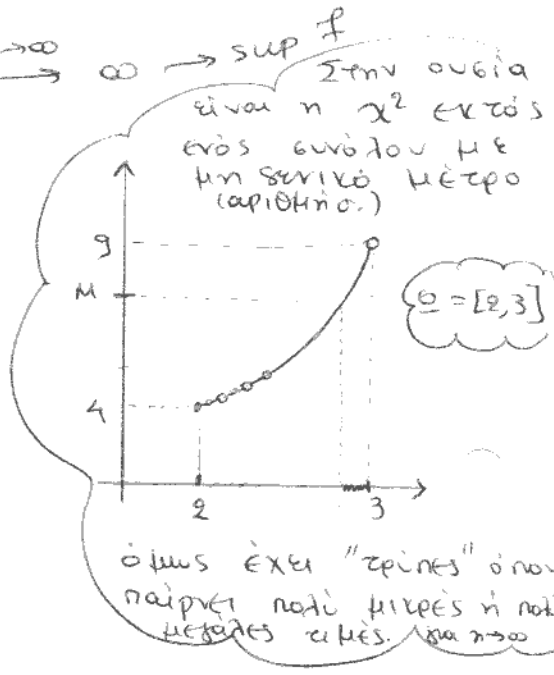 →∞
→ ∞ → sup f
Στην ουσία
είναι η x² εκτός
ενός συνόλου με
μηδενικό μέτρο
(αριθμήσ.)
9
M
σ = [2,3]
4
2
3
όμως έχει "τρύπες" όπου
παίρνει πολύ μικρές ή πολ
μεγάλες τιμές. για n→∞